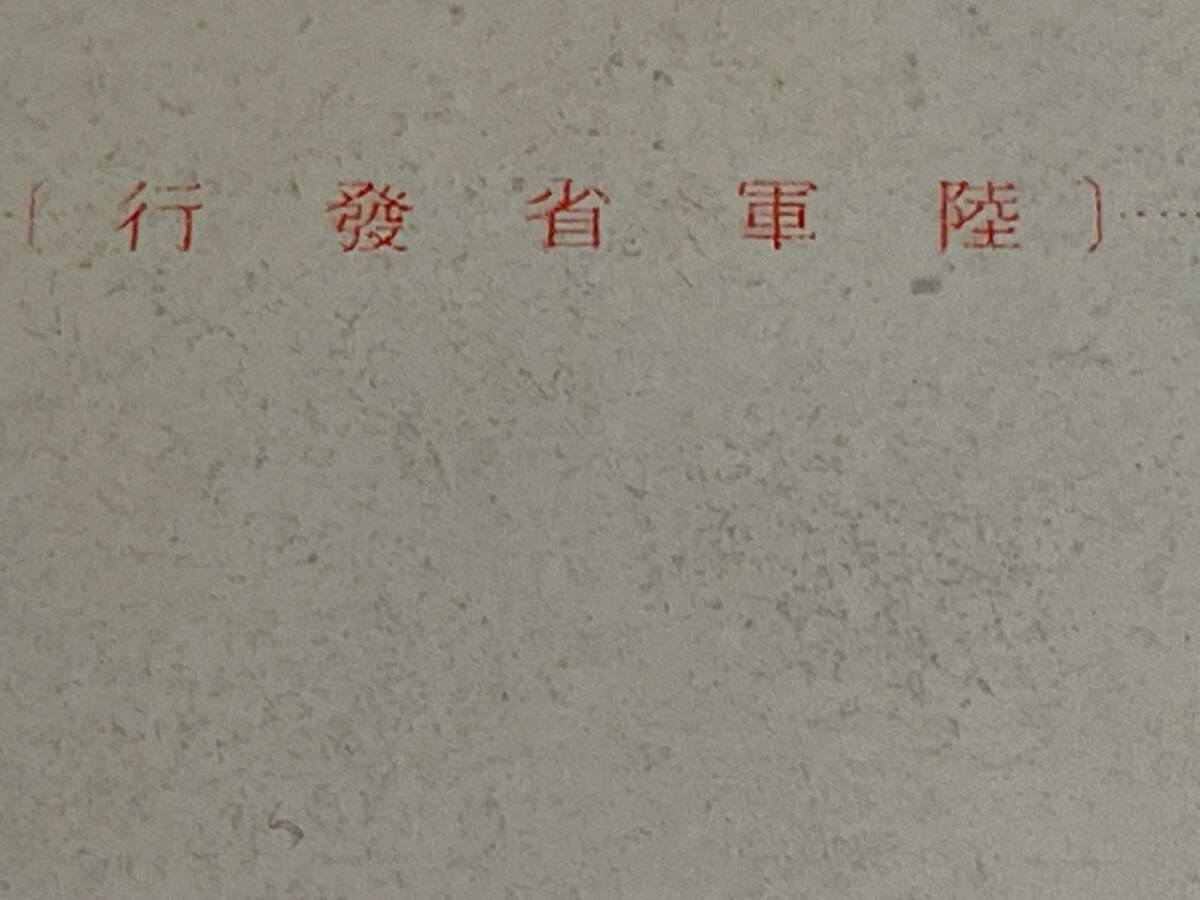 陸軍省發行